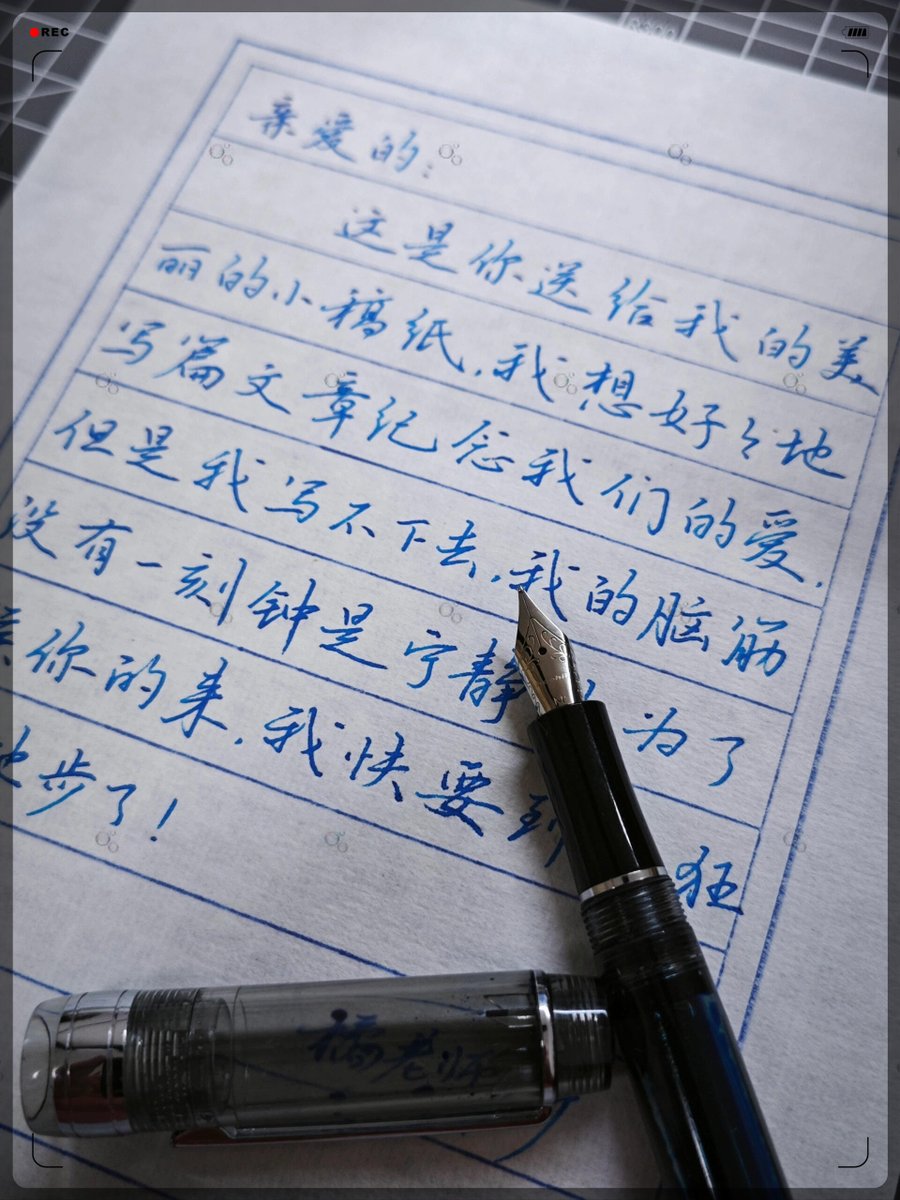 REC
亲爱的:
这是你送给我的美
丽的小稿纸,我想好々地
写篇文章纪念我们的爱,
但是我写不下去,我的脑筋
没有一刻钟是宁静 为了
你的来,我快要到 狂
地步了!
橘老师